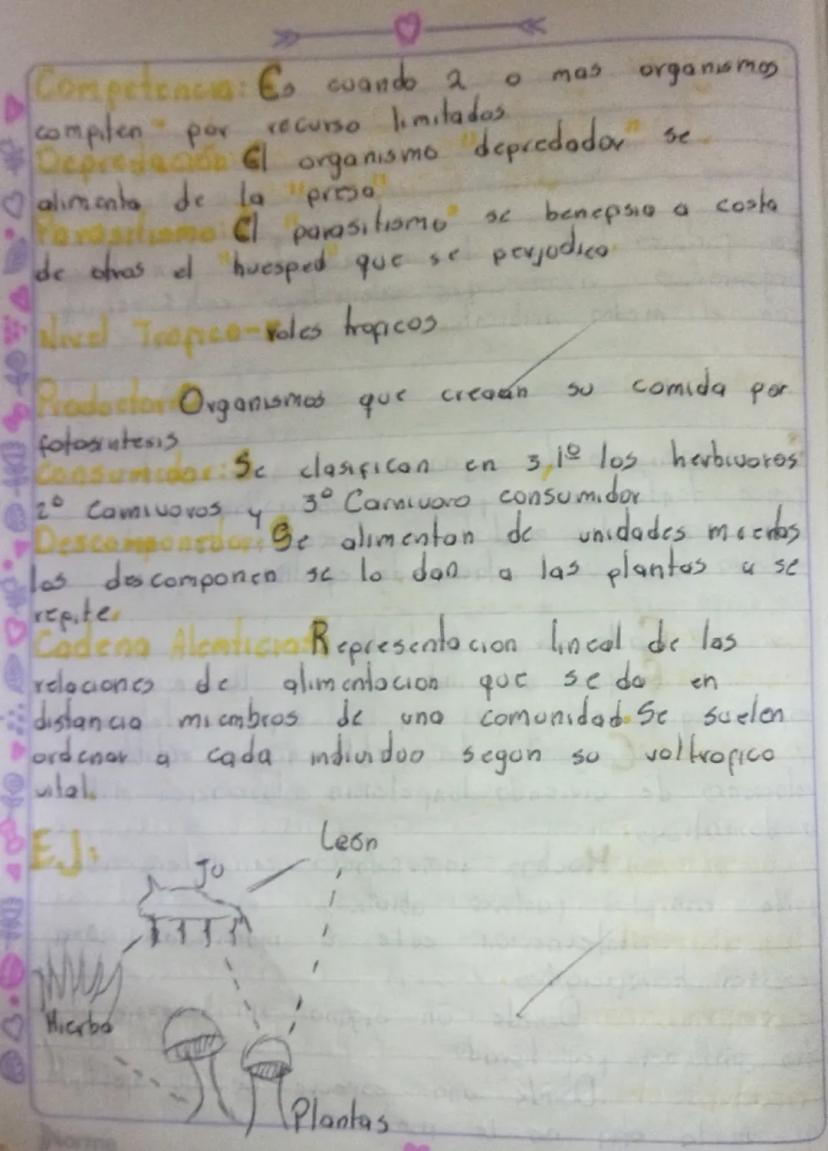 Competencia: Es cuando 2 o mas organismos
compiten por recurso limitados
Depredación El organismo "depredador" se
alimenta de la "presa"
Parasitismo: El "parasitismo" se benepsia a costa
de otras el "huesped" que se perjudica
Nivel Tropico-roles tropicos
Productor Organismos que creaan su comida por
fotosintesis
Consumidor: Se clasifican en 3, 1º los herbivoros
2º Carnivoros y 3º Carnivoro consumidor
Descomponedor: Se alimentan de unidades muertas
los descomponen se lo dan a las plantas y se
repite.
Cadena Alenticia Representacion lineal de las
relaciones de alimentacion que se da en
distancia miembros de una comunidad. Se suelen
ordenar a cada individuo segun su voltropico
vital.
EJ:
Leon
Hierba
Plantas
Norma